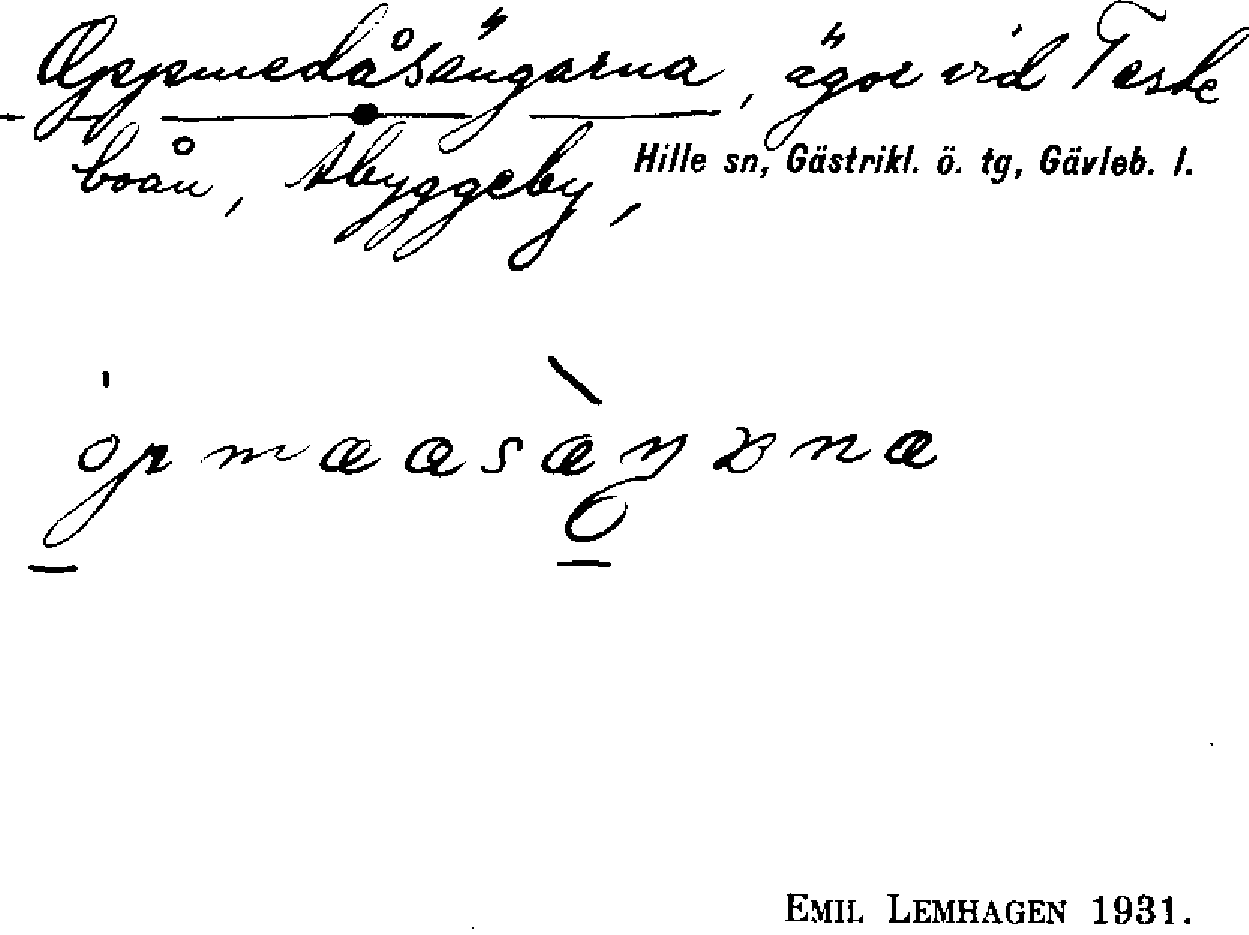 Uppmedåsängarna, ägor vid Teste
boån, Abyggeby, Hille sn, Gästrikl. ö. tg, Gävleb. l.
EMIL LEMHAGEN 1931.